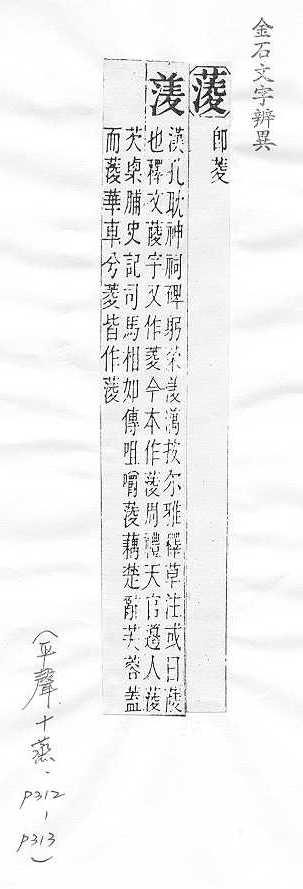 金石文字辨異
蔆
即菱
漢孔耽神祠碑躬采按尔雅釋草注或曰陵
也釋文蔆字又作菱今本作蔆周禮天官籩人蔆
芡㮚脯史記司馬相如傳咀嚼蔆藕楚辭芙蓉蓋
而蔆華車兮菱皆作蔆
（平聲十蒸．
P312
-
P313）